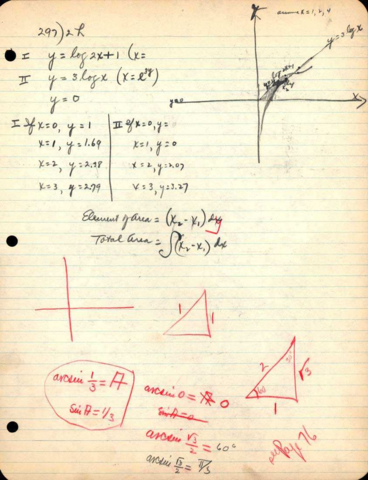 297) 2h
I y = log 2x+1 (x=
II y = 3 log x
y = 0
y = 3 log x
y
x
I If x=0, y=1
x=1, y=1.69
x=2, y=2.38
x=3, y=2.79
II If x=0, y=
x=1, y=0
x=2, y=2.07
x=3, y=3.27
Element of Area = (x₂ - x₁) dy
Total Area = ∫(x₂ - x₁) dx
1
1
arcsin 1/3 = A
sin A = 1/3
arcsin 0 = 0
sin A = 0
arcsin √3/2 = 60°
arcsin √3/2 = π/3
2
30
√3
60
1
Page 76